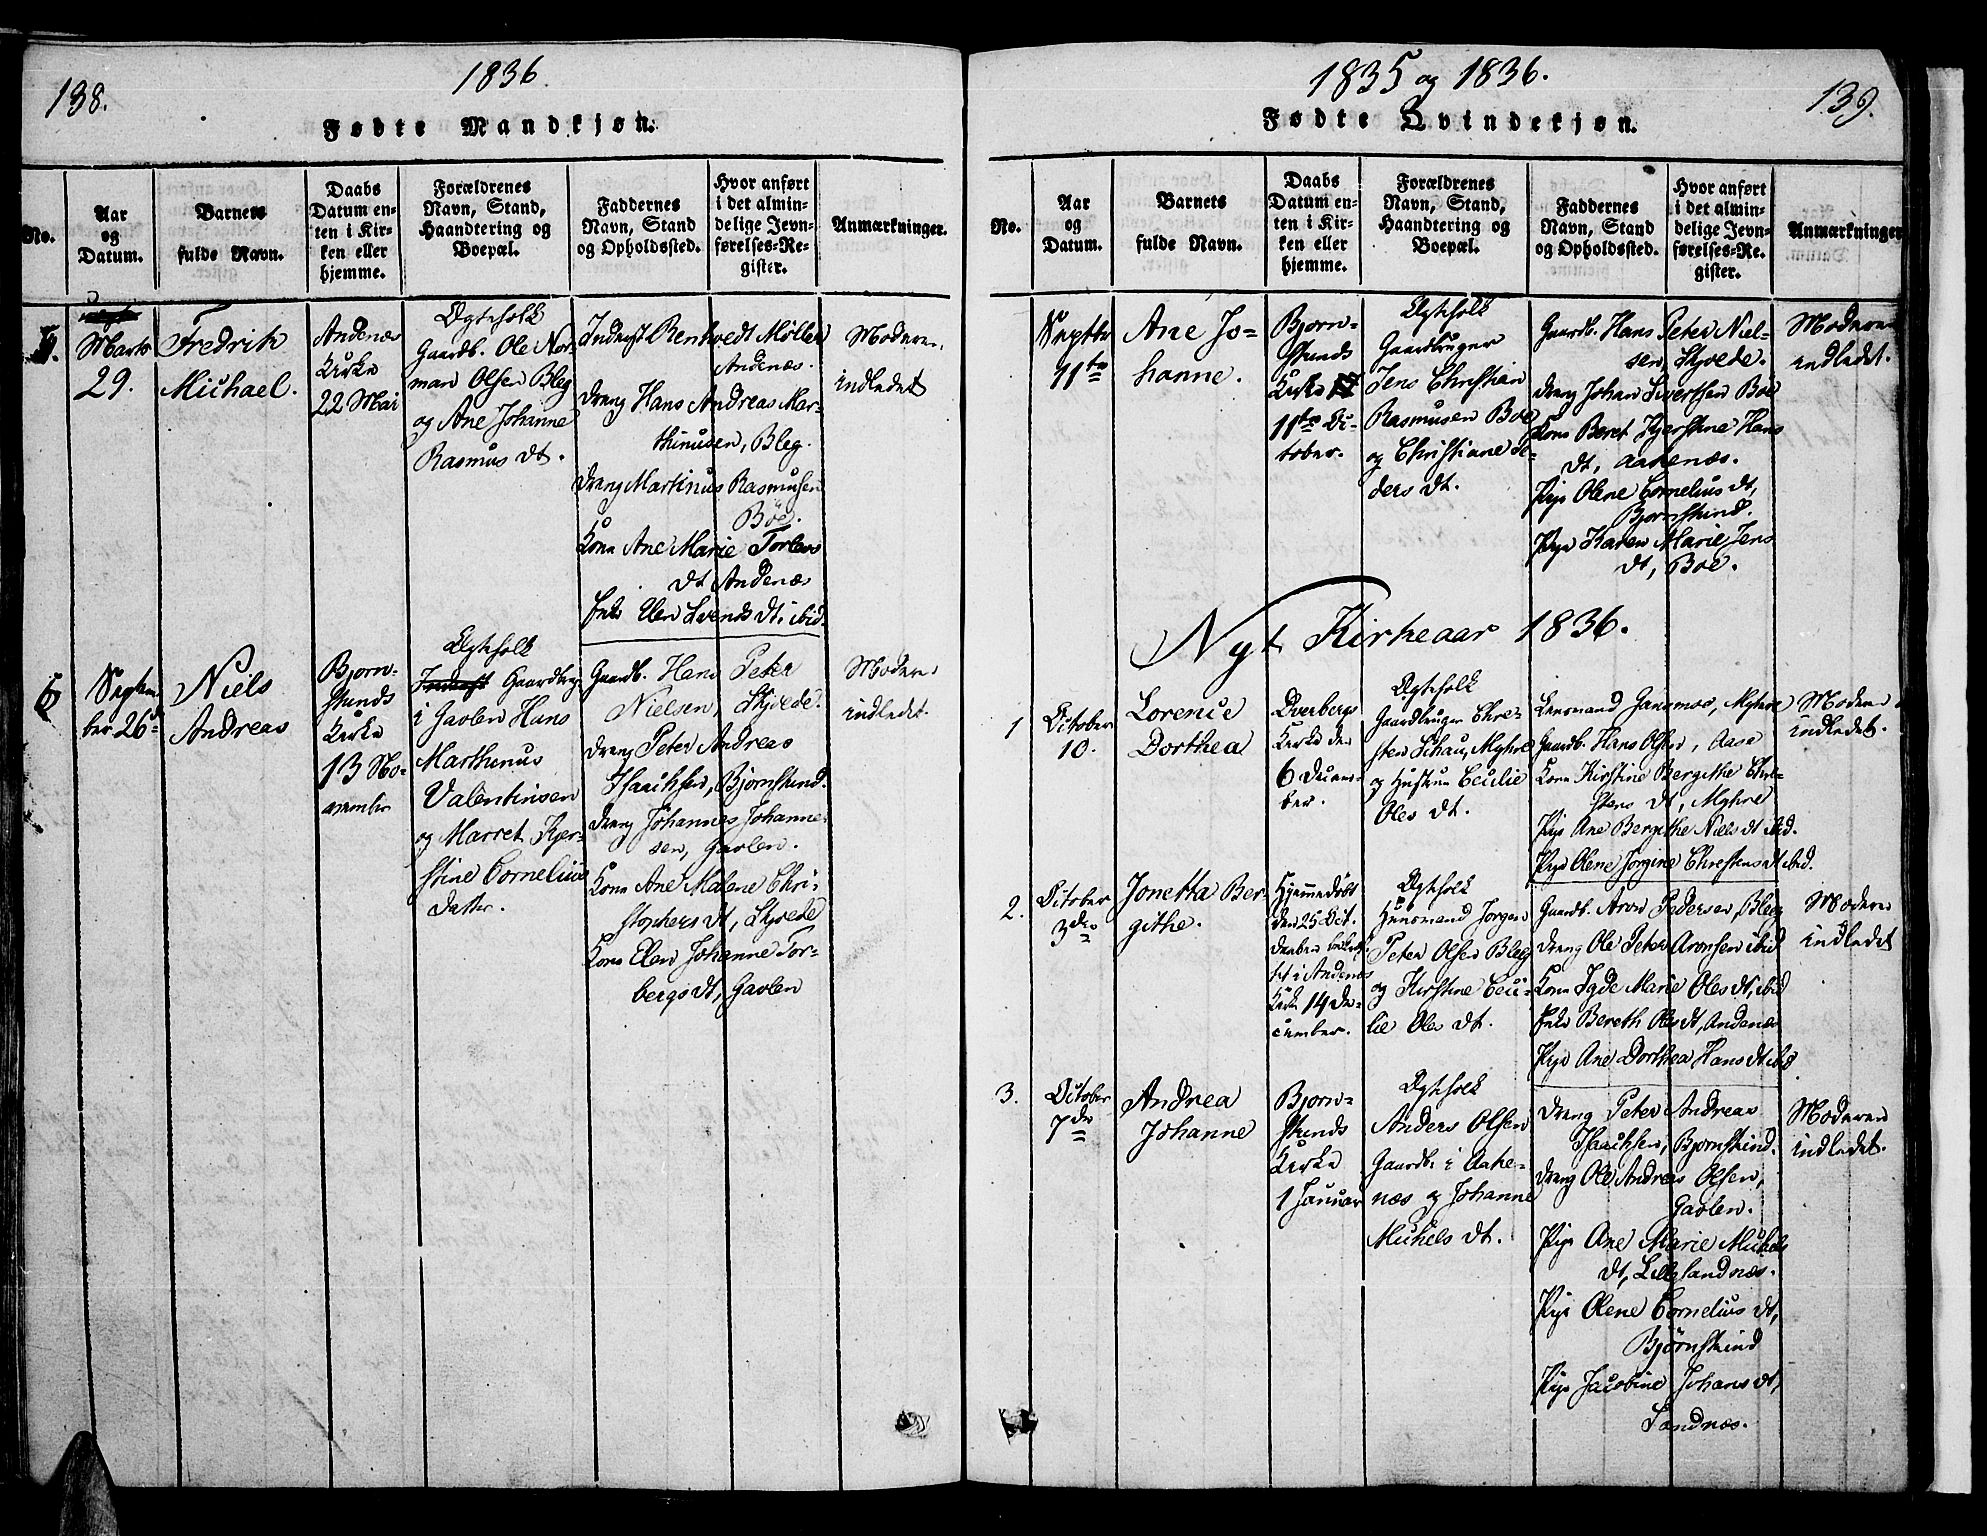 138.
1836.
Fødte Mandkjøn.
No.
Aar
og
Datum.
Barnets
fulde Navn.
Daabs
Datum en-
ten i Kir-
ken eller
hjemme.
Forældrenes
Navn, Stand,
Haandtering og
Boepæl.
Faddernes
Navn, Stand
og Opholdssted.
Hvor anført
i det almin-
delige Jevn-
førelses-Re-
gister.
Anmærkninger.
5.
Marts
29.
Fredrik
Michael.
Andenæs
Kirke
22 Mai
Ægtefolk
Gaardb. Ole Nor-
man Olsen Bleg
og Ane Johanne
Rasmus dt.
Inderst Renhoedt Møller
Andenæs.
Dreng Hans Andreas Mar-
thinusen, Bleg.
Dreng Martinus Rasmusen
Böe.
Kone Ane Marie Torlevs
dt Andenæs
Enke Elen Svends dt. ibid.
Moderen
indledet
6
Septem-
ber 26d
Niels
Andreas
Bjørn-
skinds
Kirke
13 No-
vember
Ægtefolk
Inderst Gaardbrug.
i Gavlen Hans
Marthinus
Valentinsen
og Marret Kjer-
stine Cornelius
datter.
Gaardb. Hans Peter
Nielsen, Skjvede.
Dreng Peter Andreas
Isachsen, Bjornskind.
Dreng Johannes Johanne-
sen, Gavlen.
Kone Ane Malene Chri-
stophers dt, Skjvede
Kone Elen Johanne Tor-
bergs dt, Gavlen
Moderen
indledet.
1835 og 1836.
139.
Fødte Qvindekjøn.
No.
Aar
og
Datum.
Barnets
fulde Navn.
Daabs
Datum en-
ten i Kir-
ken eller
hjemme.
Forældrenes
Navn, Stand,
Haandtering og
Boepæl.
Faddernes
Navn, Stand
og Opholdssted.
Hvor anført
i det almin-
delige Jevn-
førelses-Re-
gister.
Anmærkninger
Septbr
11te
Ane Jo-
hanne.
Bjorn-
skinds
Kirke
11te Oc-
tober.
Ægtefolk
Gaardbruger
Jens Christian
Rasmusen Boe
og Christiane Pe-
ders dt.
Gaardb. Hans Peter Niel-
sen, Skjvede.
Dreng Johan Sivertsen Boe
Kone Beret Kjerstine Hans
dt, Aakenæs.
Pige Olene Cornelius dt,
Bjornskind.
Pige Karen Marie Jens
dt, Boe.
Moderen
indledet.
Nyt Kirkeaar 1836.
1
October
10.
Lorence
Dorthea
Dverbergs
Kirke den
6 Decem-
ber.
Ægtefolk
Gaardbruger Chri-
sten Schau, Myhre
og Hustrue Cecilie
Oles dt.
Lensmand Gansmoe, Myhre
Gaardb. Hans Olsen, Aase
Kone Kirstine Bergithe Chri-
stens dt, Myhre
Pige Ane Bergithe Niels dt ibid.
Pige Olene Jorgine Christens dt ibid.
Moderen
indledet.
2.
October
3die
Jonetta Ber-
githe.
Hjemmedöbt
den 25 Oct.
Daaben
tet i Andenæs
Kirke 14 De-
cember.
Ægtefolk
Huusmand Jorgen
Peter Olsen Bleeg
og Kirstine Ceci-
lie Oles dt.
Gaardb. Aron Pedersen, Bleeg
Dreng Ole Peter Aronsen ibid
Kone Igde Marie Oles dt, ibid
Enke Bereth Oles dt, Andenæs
Pige Ane Dorthea Hans dt ibid
Moderen
indledet
3.
October
7de
Andrea
Johanne
Bjorn-
skinds
Kirke
1 Januar
Ægtefolk
Anders Olsen
Gaardb. i Aake-
næs og Johanne
Michels dt.
Dreng Peter Andreas
Isachsen, Bjornskind.
Dreng Ole Andreas Olsen,
Gavlen.
Pige Ane Marie Michels
dt, Lillelandnæs.
Pige Olene Cornelius dt,
Björnskind
Pige Jacobine Johans dt,
Sandnæs.
Moderen
indledet.